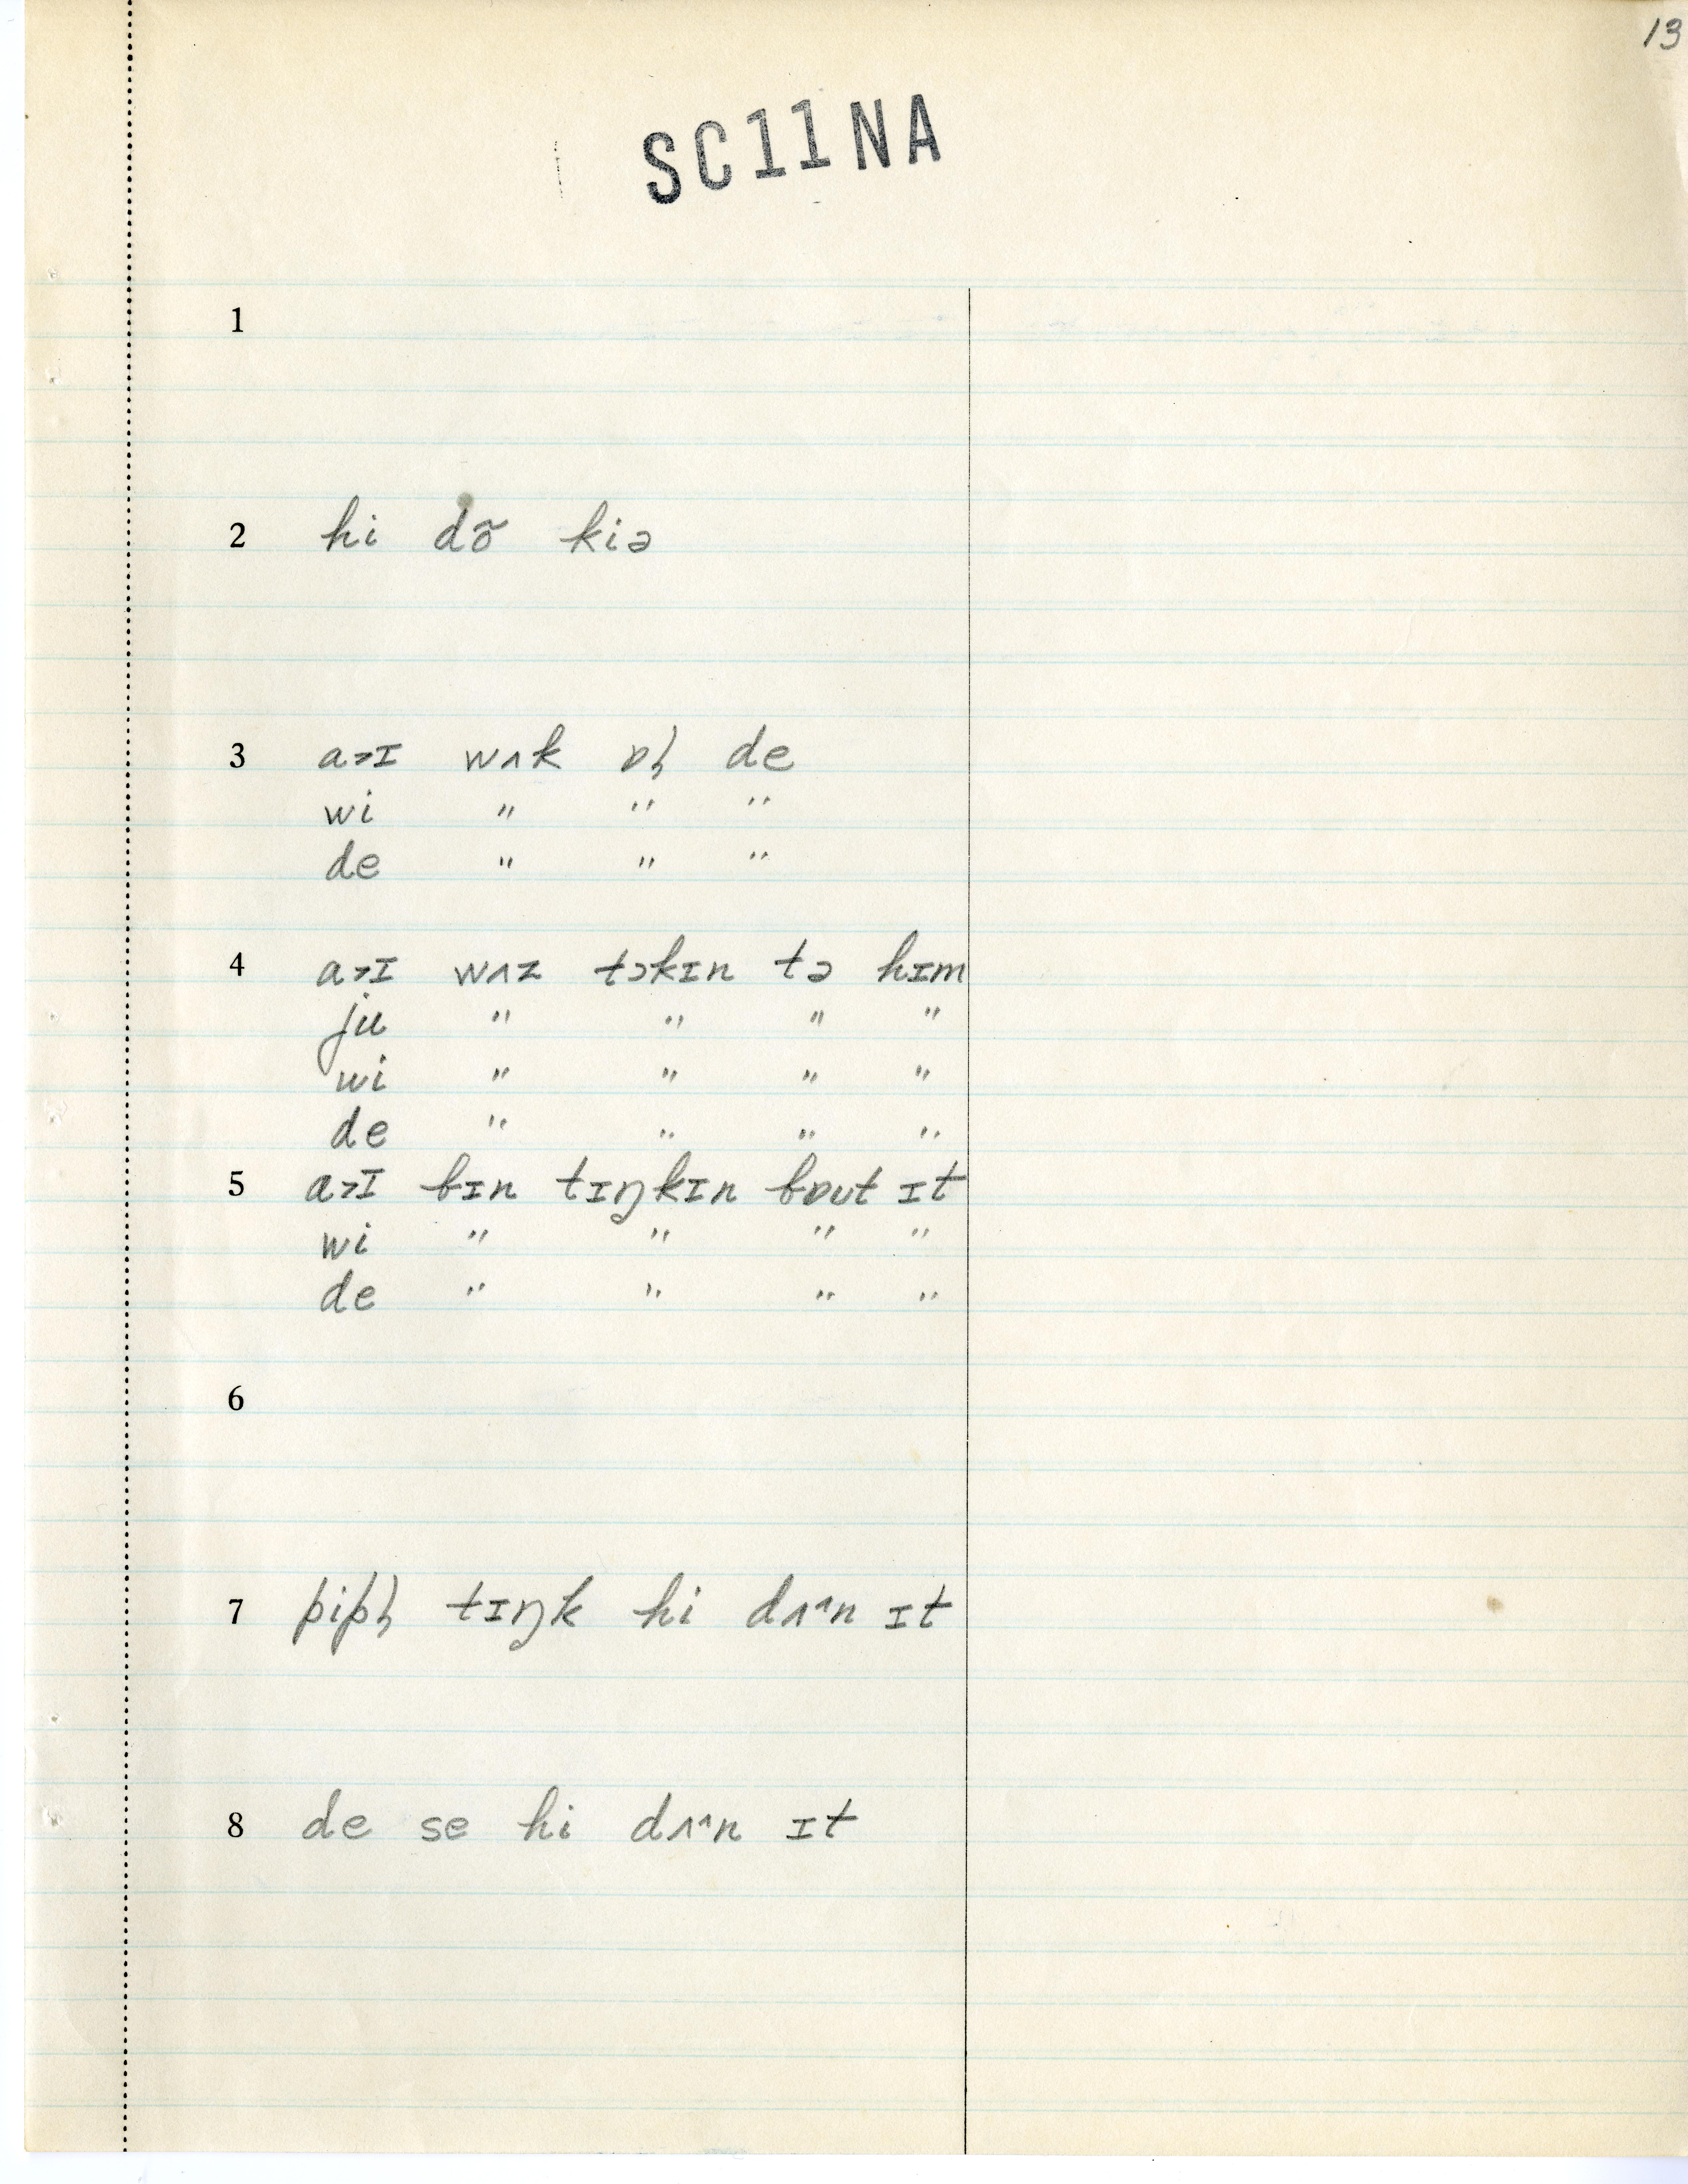 13
SC11NA
1
2 hi dõ kiə
3 a˃ɪ wʌk ɒɦ de
wi " " "
de " " "
4 a˃ɪ wʌz tɔkɪn tə hɪm
ju " " " "
wi " " " "
de " " " "
5 a˃ɪ bɪn tɪŋkɪn bɒut ɪt
wi " " " "
de " " " "
6
7 tɪŋk hi dʌ˄n ɪt
8 de se hi dʌ˄n ɪt